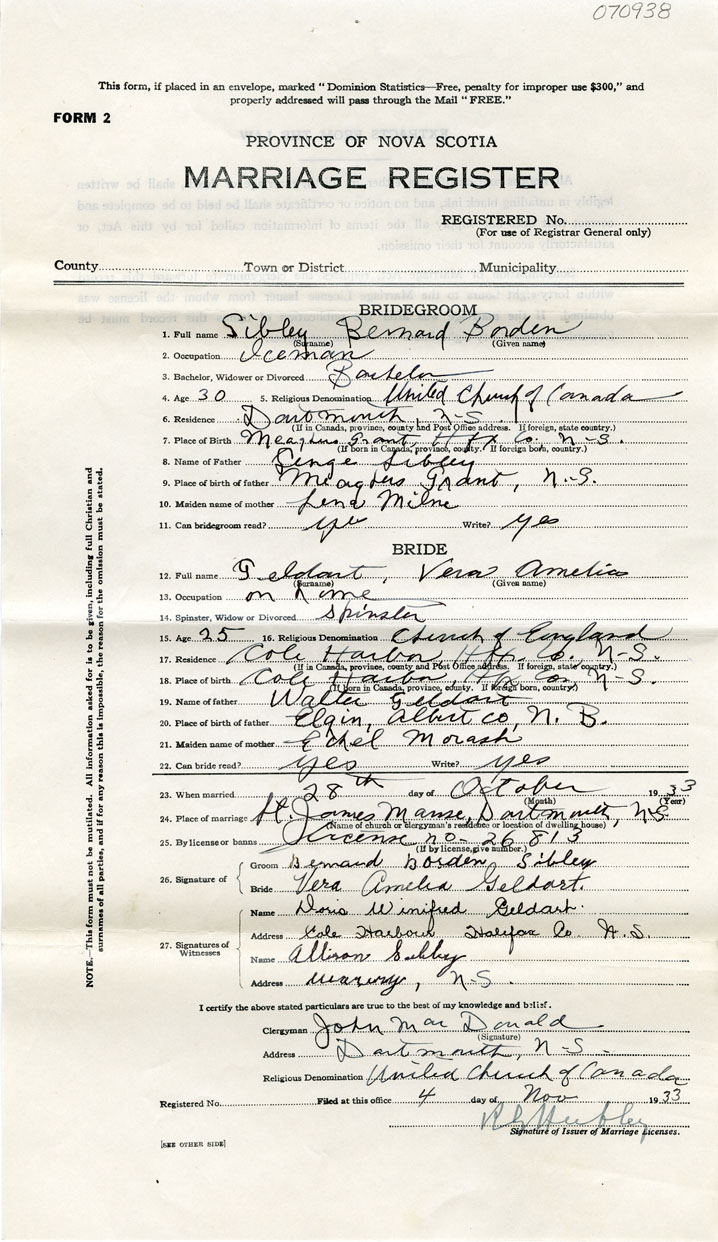 070938
This form, if placed in an envelope, marked "Dominion Statistics—Free, penalty for improper use $300," and
properly addressed will pass through the Mail "FREE."
FORM 2
PROVINCE OF NOVA SCOTIA
MARRIAGE REGISTER
REGISTERED No.
(For use of Registrar General only)
County Town or District Municipality
BRIDEGROOM
1. Full name Sibley Bernard Borden
(Surname) (Given name)
2. Occupation Iceman
3. Bachelor, Widower or Divorced Bachelor
4. Age 30 5. Religious Denomination United Church of Canada
6. Residence Dartmouth, N-S
(If in Canada, province, county and Post Office address. If foreign, state country.)
7. Place of Birth Meaghers Grant, Hfx Co. N-S.
(If born in Canada, province, county. If foreign born, country.)
8. Name of Father George Sibley
9. Place of birth of father Meaghers Grant, N.-S.
10. Maiden name of mother Lena Milne
11. Can bridegroom read? yes Write? yes
BRIDE
12. Full name Geldart, Vera Amelia
(Surname) (Given name)
13. Occupation on home
14. Spinster, Widow or Divorced spinster
15. Age 25 16. Religious Denomination Church of England
17. Residence Cole Harbor, Hfx Co, N-S.
(If in Canada, province, county and Post Office address. If foreign, state country.)
18. Place of birth Cole Harbor, Hfx Co, N-S.
(If born in Canada, province, county. If foreign born, country.)
19. Name of father Walter Geldart
20. Place of birth of father Elgin, Albert co, N. B.
21. Maiden name of mother Ethel Morash
22. Can bride read? yes Write? yes
23. When married 28th day of October 1933
(Month) (Year)
24. Place of marriage St. James Manse, Dartmouth, N-S
(Name of church or clergyman's residence or location of dwelling house)
25. By license or banns License no- 26813
(If by license, give number.)
26. Signature of
Groom Bernard Borden Sibley
Bride Vera Amelia Geldart.
27. Signatures of Witnesses
Name Doris Winifred Geldart.
Address Cole Harbour Halifax Co N.S.
Name Allison Sibley
Address , N-S.
I certify the above stated particulars are true to the best of my knowledge and belief.
Clergyman John Mac Donald
(Signature)
Address Dartmouth, N-S-
Religious Denomination United Church of Canada
Registered No. Filed at this office 4 day of Nov 1933
Signature of Issuer of Marriage Licenses.
[SEE OTHER SIDE]
NOTE.—This form must not be mutilated. All information asked for is to be given, including full Christian and
surnames of all parties, and if for any reason this is impossible, the reason for the omission must be stated.